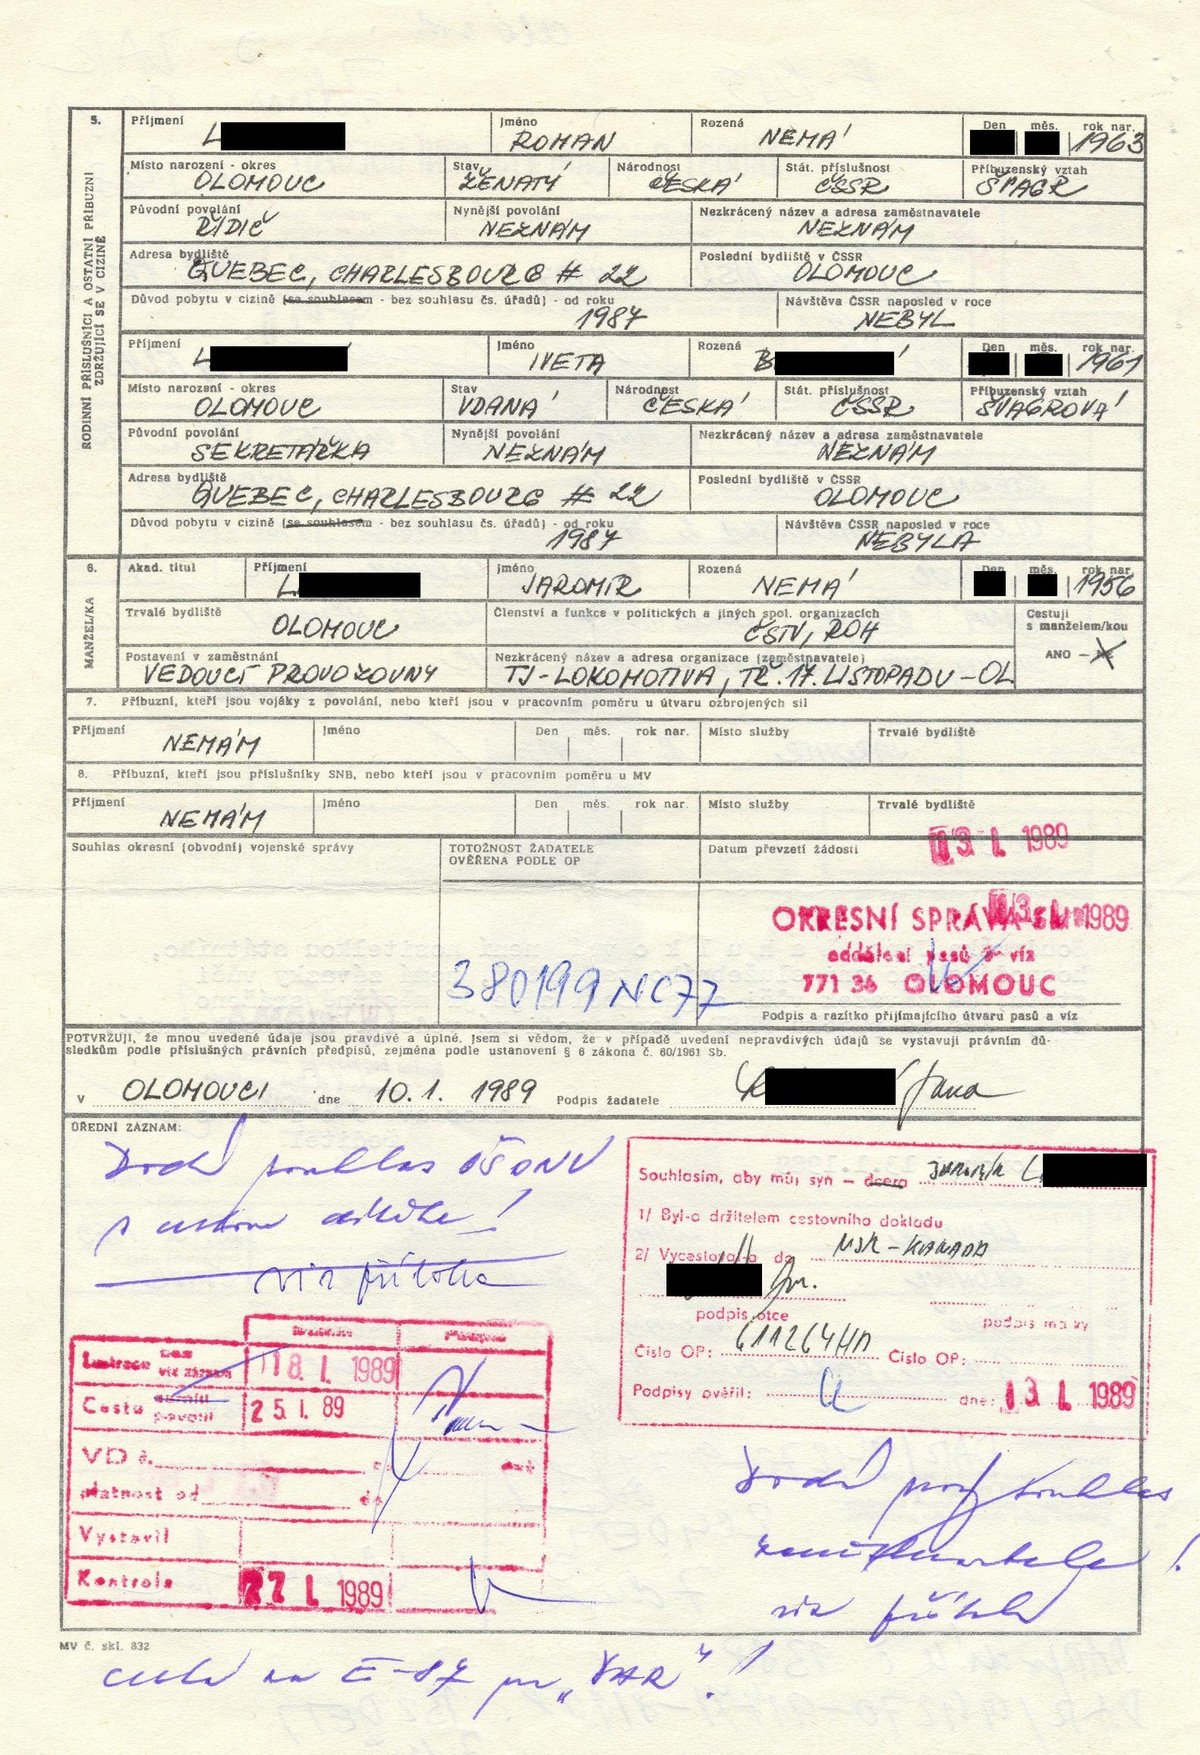 5.
RODINNÍ PŘÍSLUŠNÍCI A OSTATNÍ PŘÍBUZNÍ
ZDRŽUJÍCÍ SE V CIZINĚ
Příjmení Jméno Rozená Den měs. rok nar.
L ROMAN NEMÁ 1963
Místo narození - okres Stav Národnost Stát. příslušnost Příbuzenský vztah
OLOMOUC ŽENATÝ ČESKÁ ČSSR ŠVAGR
Původní povolání Nynější povolání Nezkrácený název a adresa zaměstnavatele
ŘIDIČ NEZNÁM NEZNÁM
Adresa bydliště Poslední bydliště v ČSSR
QUEBEC, CHARLESBOURG # 22 OLOMOUC
Důvod pobytu v cizině (se souhlasem - bez souhlasu čs. úřadů) - od roku Návštěva ČSSR naposled v roce
1987 NEBYL
Příjmení Jméno Rozená Den měs. rok nar.
L IVETA B Á 1961
Místo narození - okres Stav Národnost Stát. příslušnost Příbuzenský vztah
OLOMOUC VDANÁ ČESKÁ ČSSR ŠVAGROVÁ
Původní povolání Nynější povolání Nezkrácený název a adresa zaměstnavatele
SEKRETÁŘKA NEZNÁM NEZNÁM
Adresa bydliště Poslední bydliště v ČSSR
QUEBEC, CHARLESBOURG # 22 OLOMOUC
Důvod pobytu v cizině (se souhlasem - bez souhlasu čs. úřadů) - od roku Návštěva ČSSR naposled v roce
1987 NEBYLA
6.
MANŽEL/KA
Akad. titul Příjmení Jméno Rozená Den měs. rok nar.
L JAROMÍR NEMÁ 1956
Trvalé bydliště Členství a funkce v politických a jiných spol. organizacích Cestuji
s manželem/kou
OLOMOUC ČSTV, ROH
ANO - NE
Postavení v zaměstnání Nezkrácený název a adresa organizace (zaměstnavatele)
VEDOUCÍ PROVOZOVNY TJ-LOKOMOTIVA, TŘ. 17. LISTOPADU-OL
7. Příbuzní, kteří jsou vojáky z povolání, nebo kteří jsou v pracovním poměru u útvaru ozbrojených sil
Příjmení Jméno Den měs. rok nar. Místo služby Trvalé bydliště
NEMÁM
8. Příbuzní, kteří jsou příslušníky SNB, nebo kteří jsou v pracovním poměru u MV
Příjmení Jméno Den měs. rok nar. Místo služby Trvalé bydliště
NEMÁM
Souhlas okresní (obvodní) vojenské správy TOTOŽNOST ŽADATELE
OVĚŘENA PODLE OP
Datum převzetí žádosti
13. I. 1989
OKRESNÍ SPRÁVA SNB
13. I. 1989
oddělení pasů a víz
771 36 OLOMOUC
380199 NC77
Podpis a razítko přijímajícího útvaru pasů a víz
POTVRZUJI, že mnou uvedené údaje jsou pravdivé a úplné. Jsem si vědom, že v případě uvedení nepravdivých údajů se vystavuji právním dů-
sledkům podle příslušných právních předpisů, zejména podle ustanovení § 6 zákona č. 60/1961 Sb.
v OLOMOUCI dne 10. 1. 1989 Podpis žadatele Jana
ÚŘEDNÍ ZÁZNAM:
Dodá souhlas OŠONV
viz příloha
Souhlasím, aby můj syn - dcera JAROMÍR L
1/ Byl-a držitelem cestovního dokladu
2/ Vycestoval-a do NSR-KANADA
podpis otce podpis matky
Číslo OP: 611264HN Číslo OP:
Podpisy ověřil: dne: 13. I. 1989
Lustrace viz záznam 18. I. 1989
Cestu povolil 25. I. 89
VD č.
platnost od do
Vystavil
Kontrola 27. I. 1989
Dodá souhlas
zaměstnavatele!
viz příloha
MV č. skl. 832